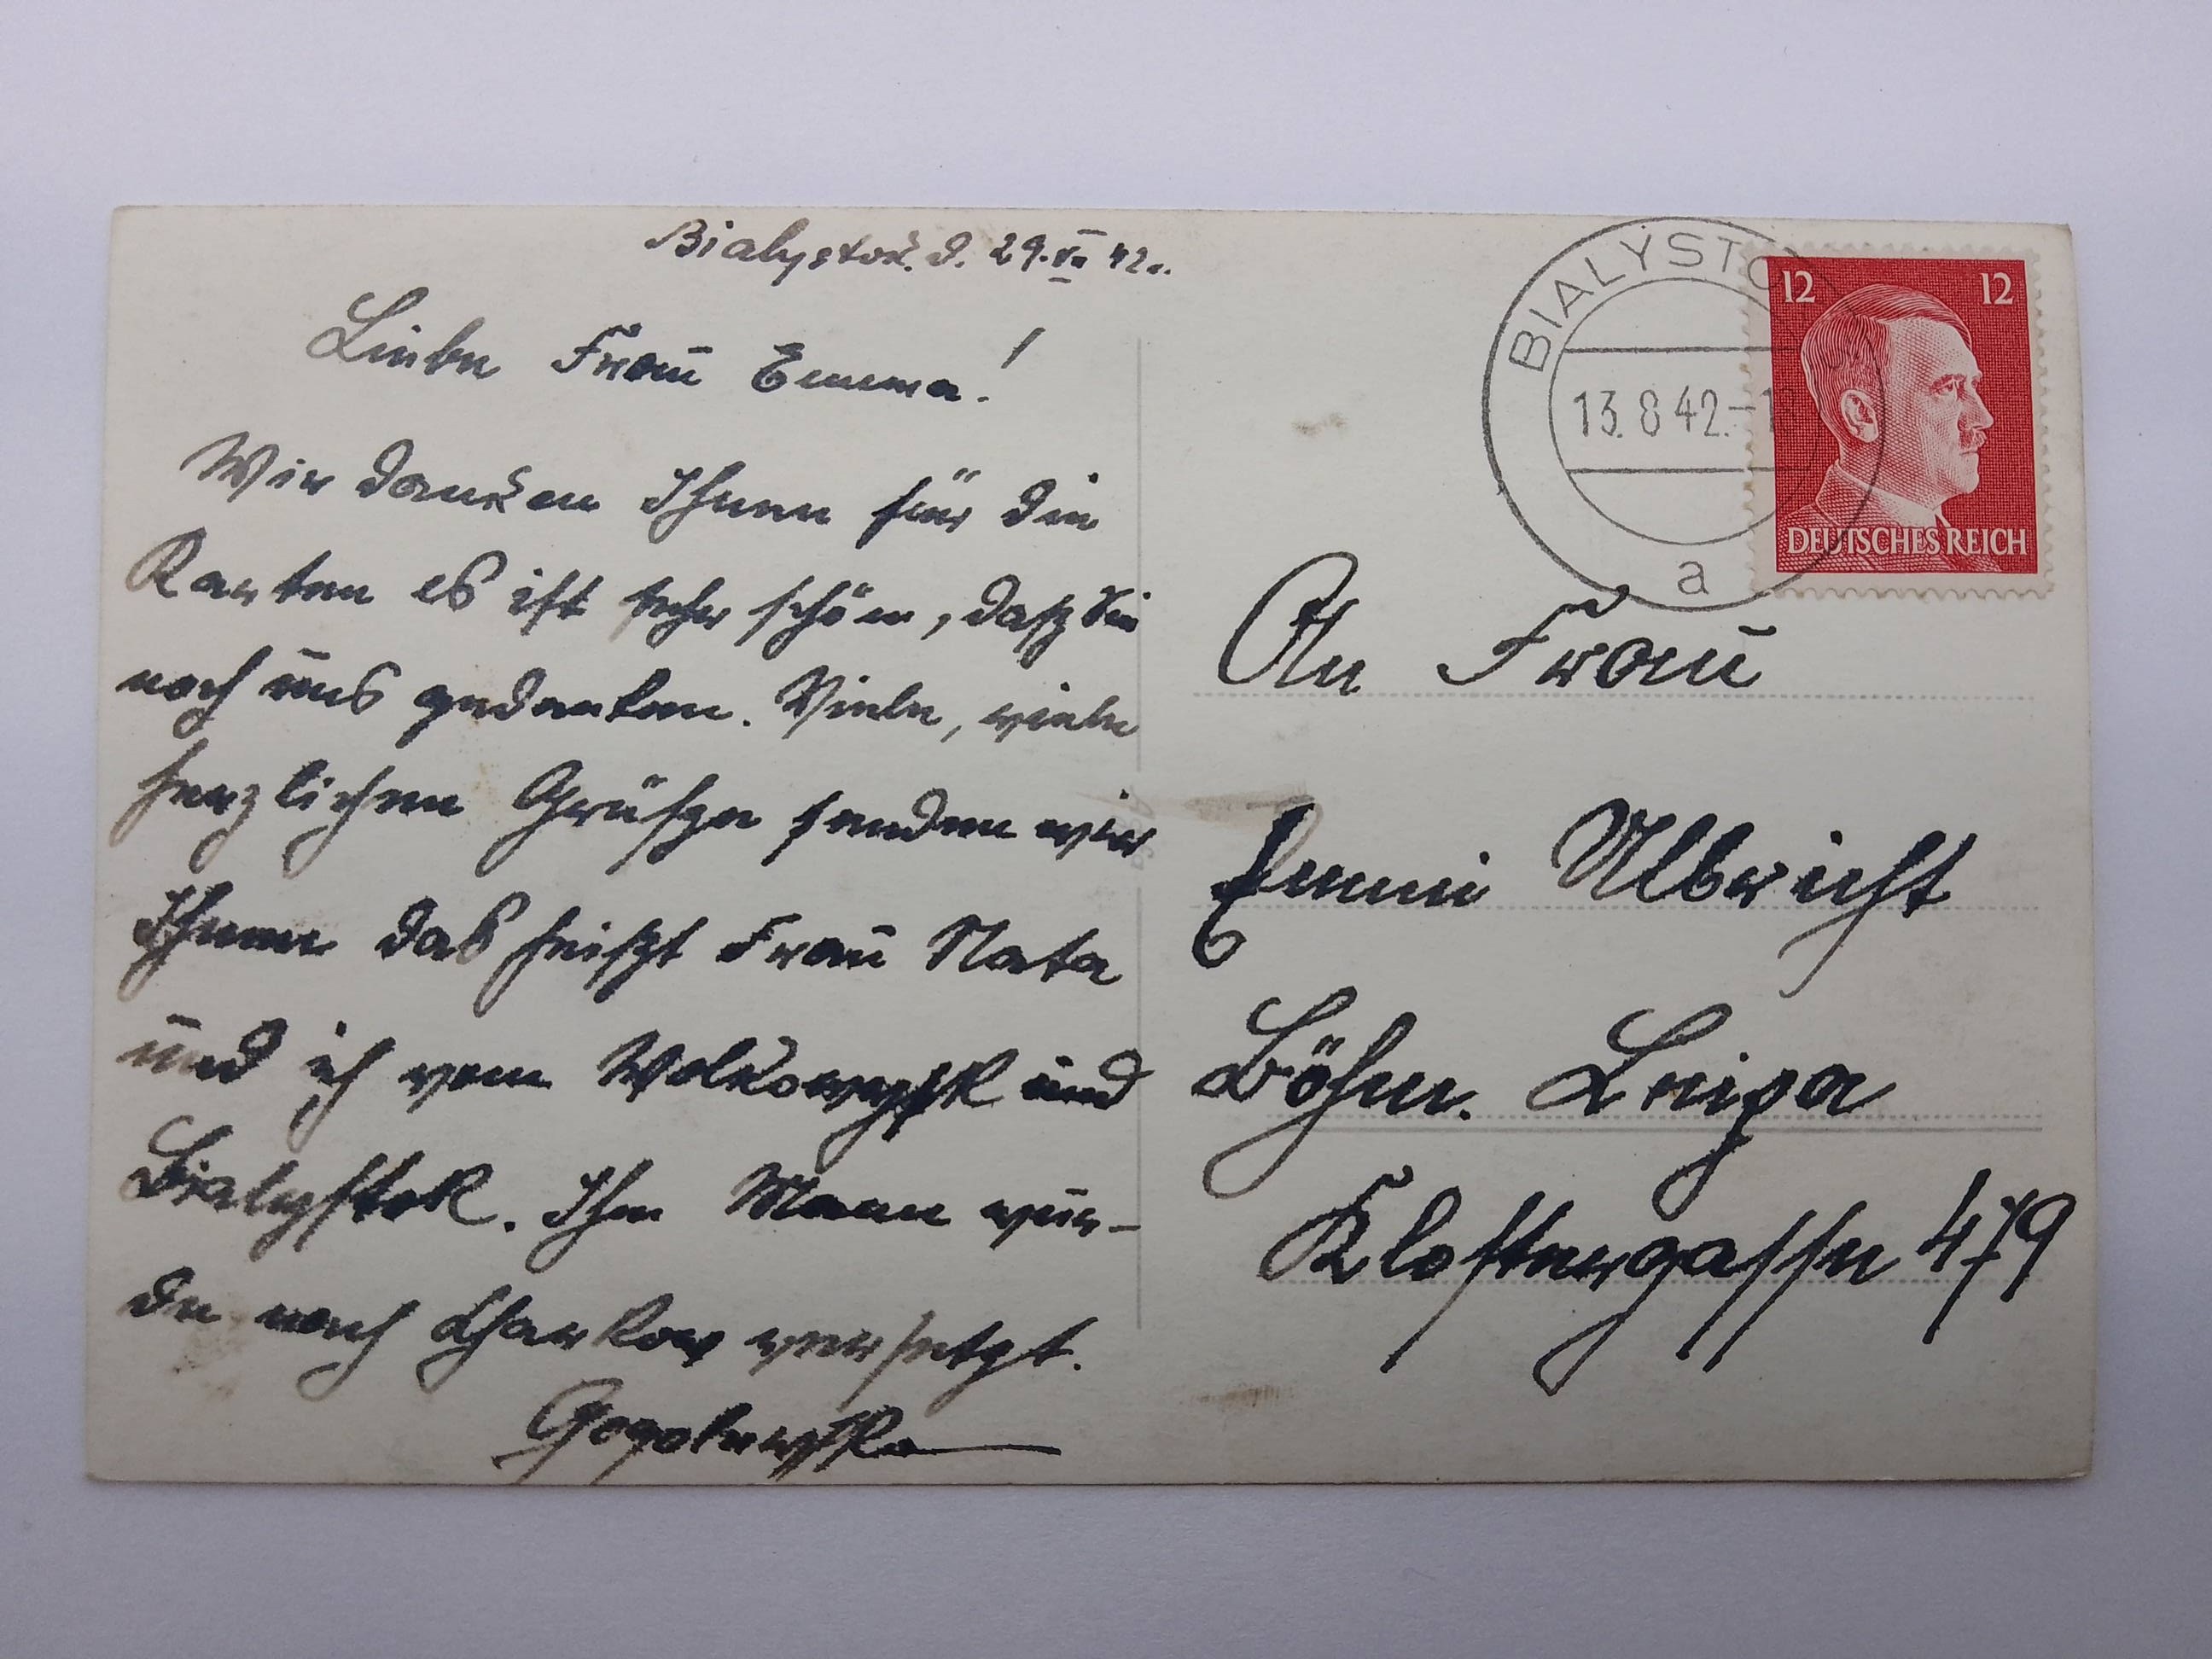 Bialystok. d. 29. VII 42.
Liebe Frau Emma!
Wir danken Ihnen für die
Karten es ist sehr schön, dasz Sie
noch uns gedenken. Viele, viele
herzlichen Grüsze senden wir
Ihnen das heiszt Frau Nata
und ich vom Wolkowysk und
Bialystok. Ihr Mann wur-
de nach Charkow versetzt.
Gogolewska
BIALYSTOK
13.8.42.-1
a
12 12
DEUTSCHES REICH
An Frau
Emmi Ulbricht
Böhm. Leipa
Klostergasse 479